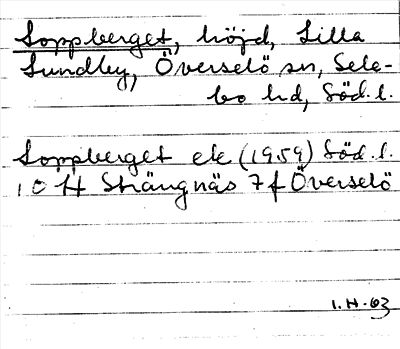 Soppberget, höjd, Lilla
Lundby, Överselö sn, Sele-
bo hd, Söd. l.
Soppberget ek (1959) Söd. l.
10 H Strängnäs 7 f Överselö
1. H. 63